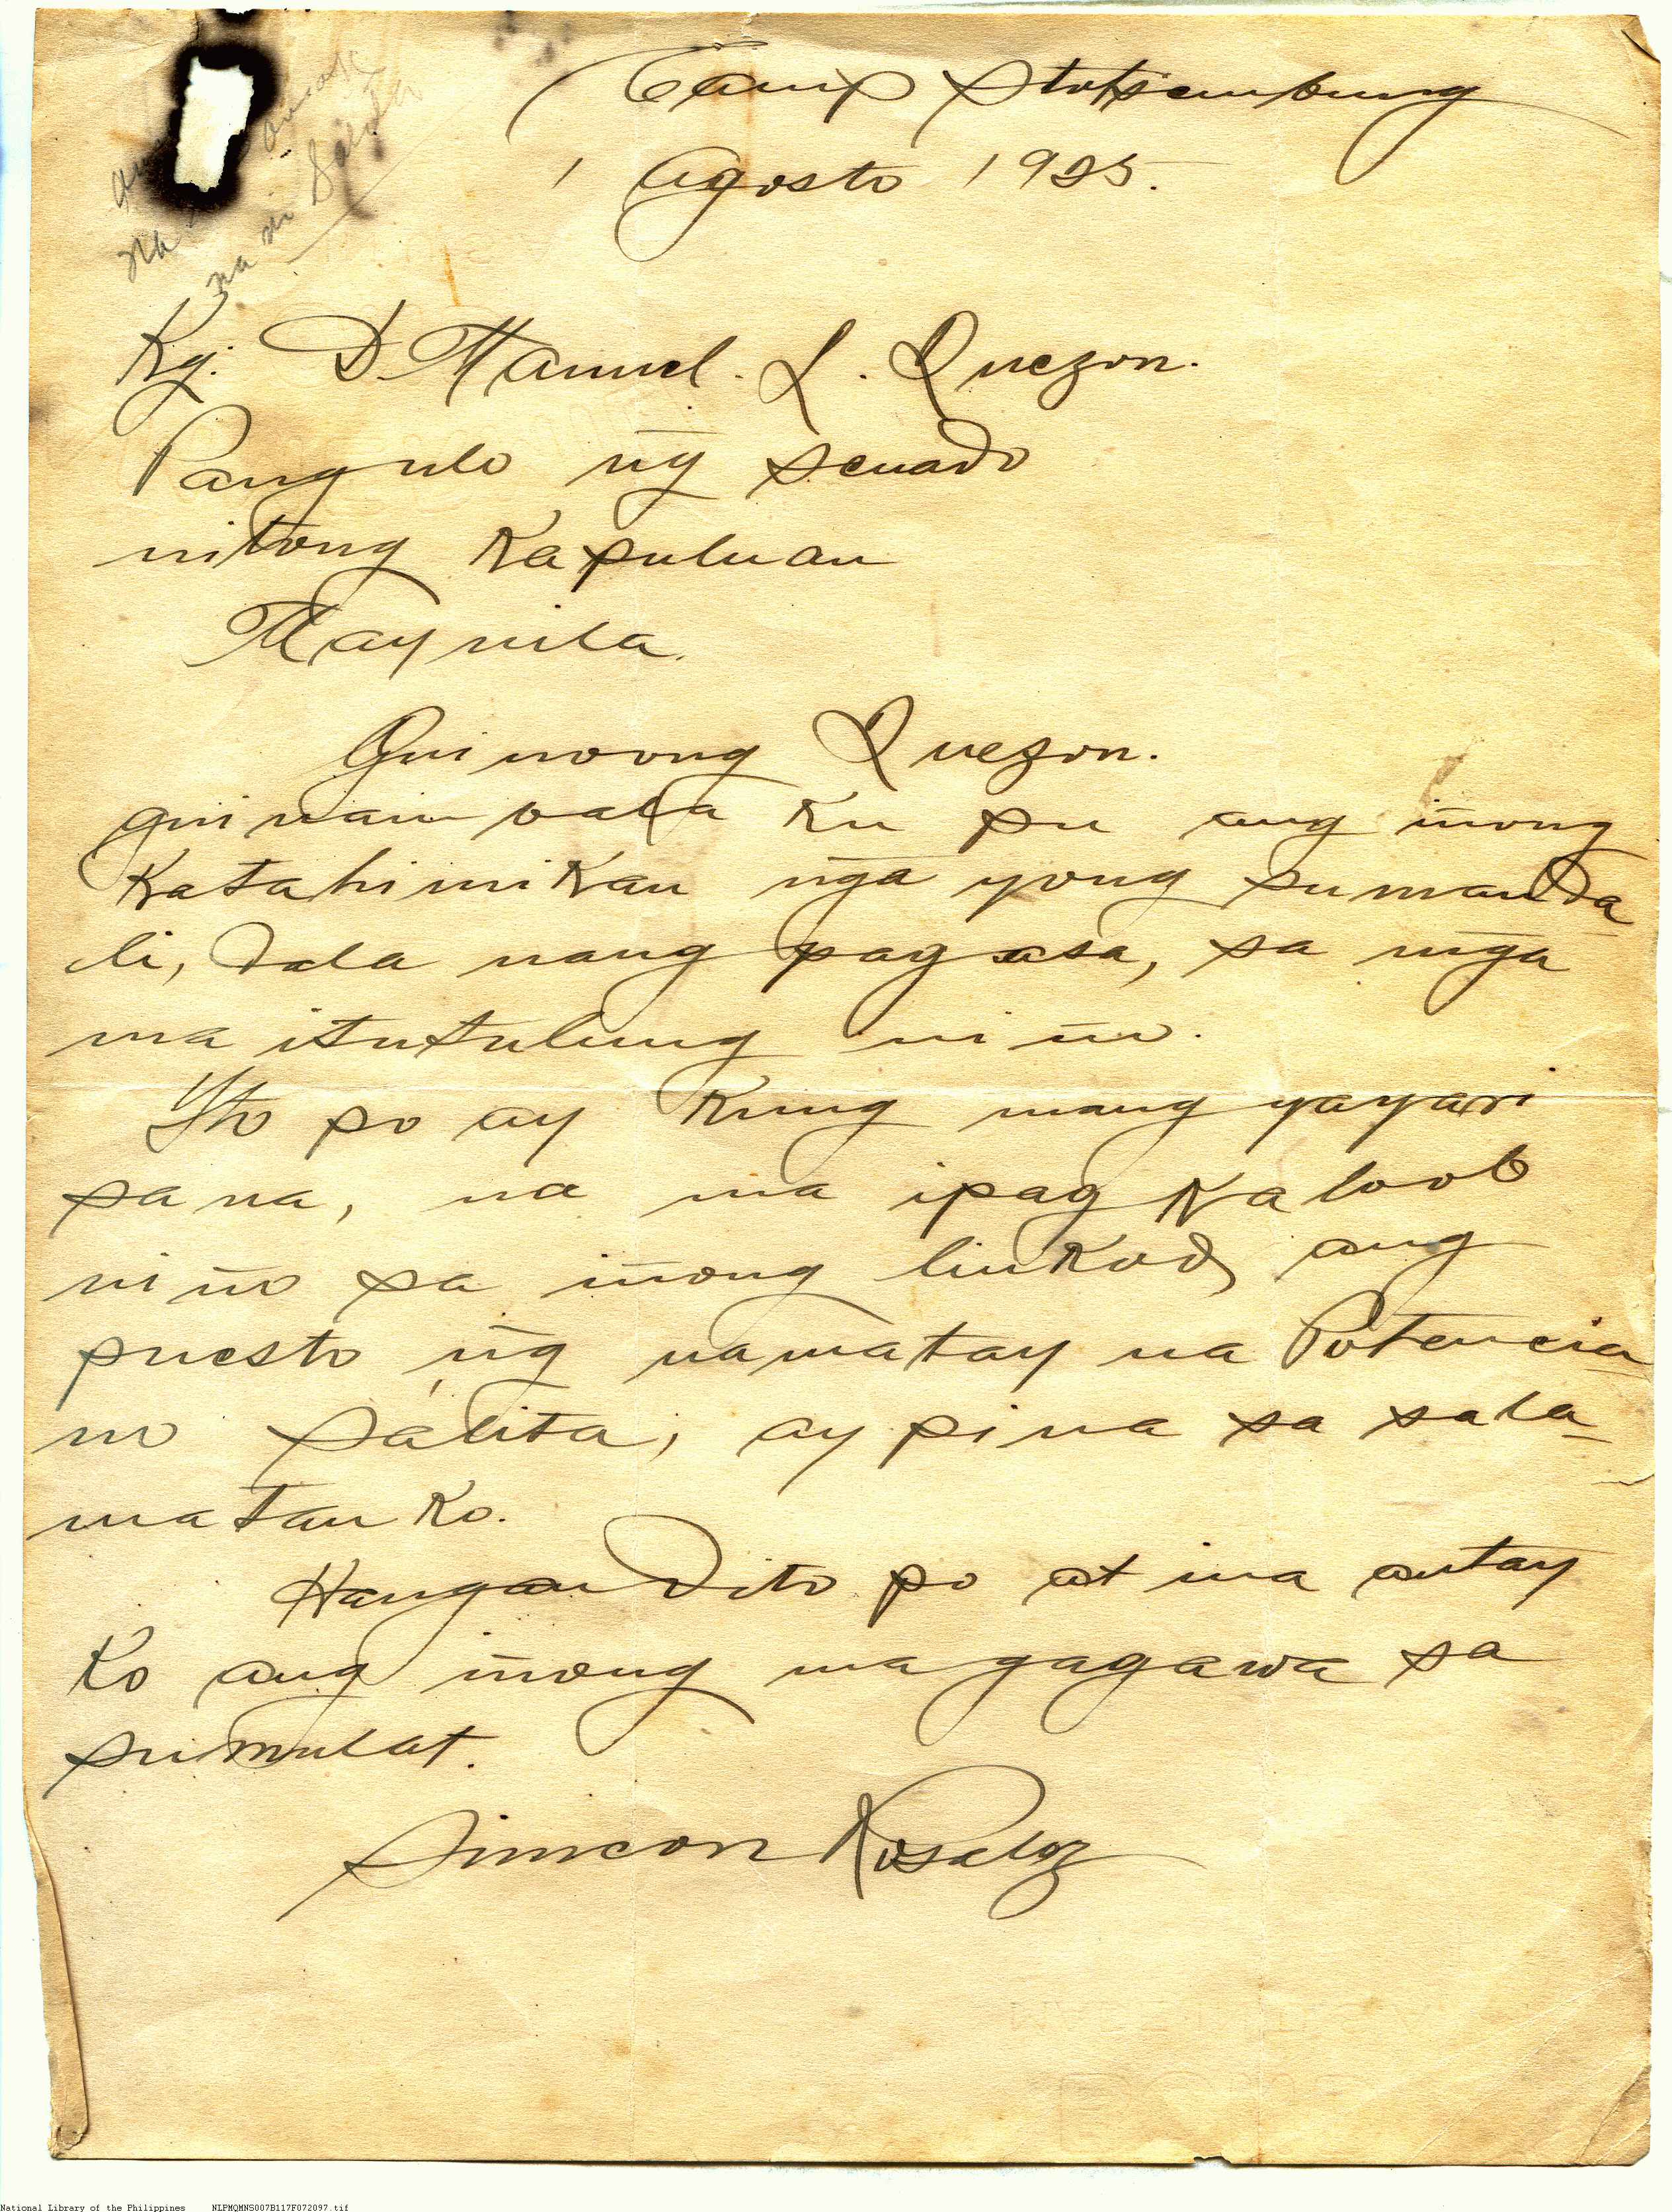 Camp Stotsemburg
1 Agosto 1925.
na si
Kg. D Manuel. L. Quezon.
Pangulo ñg senado
nitong Kapuluan
Maynila.
Guinoong Quezon.
guinam bala Ku pu ang iñong
Katahimikan ñga yong sumanda
li, dala nang pag asa, sa mg̃a
ma itutulung niño.
Yto po ay Kung mang yayari
sa na, na ma ipag Kaloob
niño sa iñong linKod, ang
puesto ñg namatay na Potencia
no Salita, ay pina sa sala-
matan Ko.
Hangan dito po at ina antay
Ko ang iñong magagawa sa
sumulat.
Simeon Rosaloz
National Library of the Philippines NLPMQMNS007B117F072097.tif